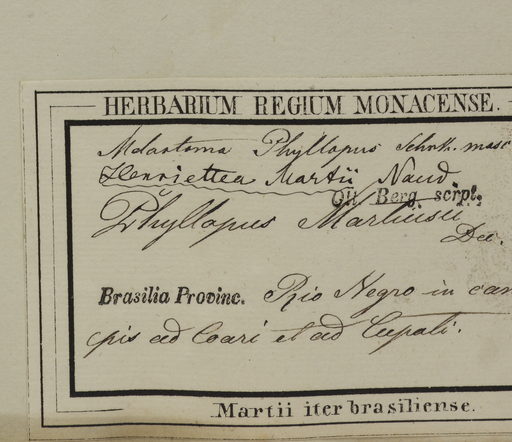 HERBARIUM REGIUM MONACENSE.
Melastoma Phyllopus Schrk. masc
Henriettea Martii Naud.
Ott Berg scrpt.
Phyllopus Martiusii
Dec.
Brasilia Provinc. Rio Negro in cam
pis ad Coari et ad Cupati.
Martii iter brasiliense.